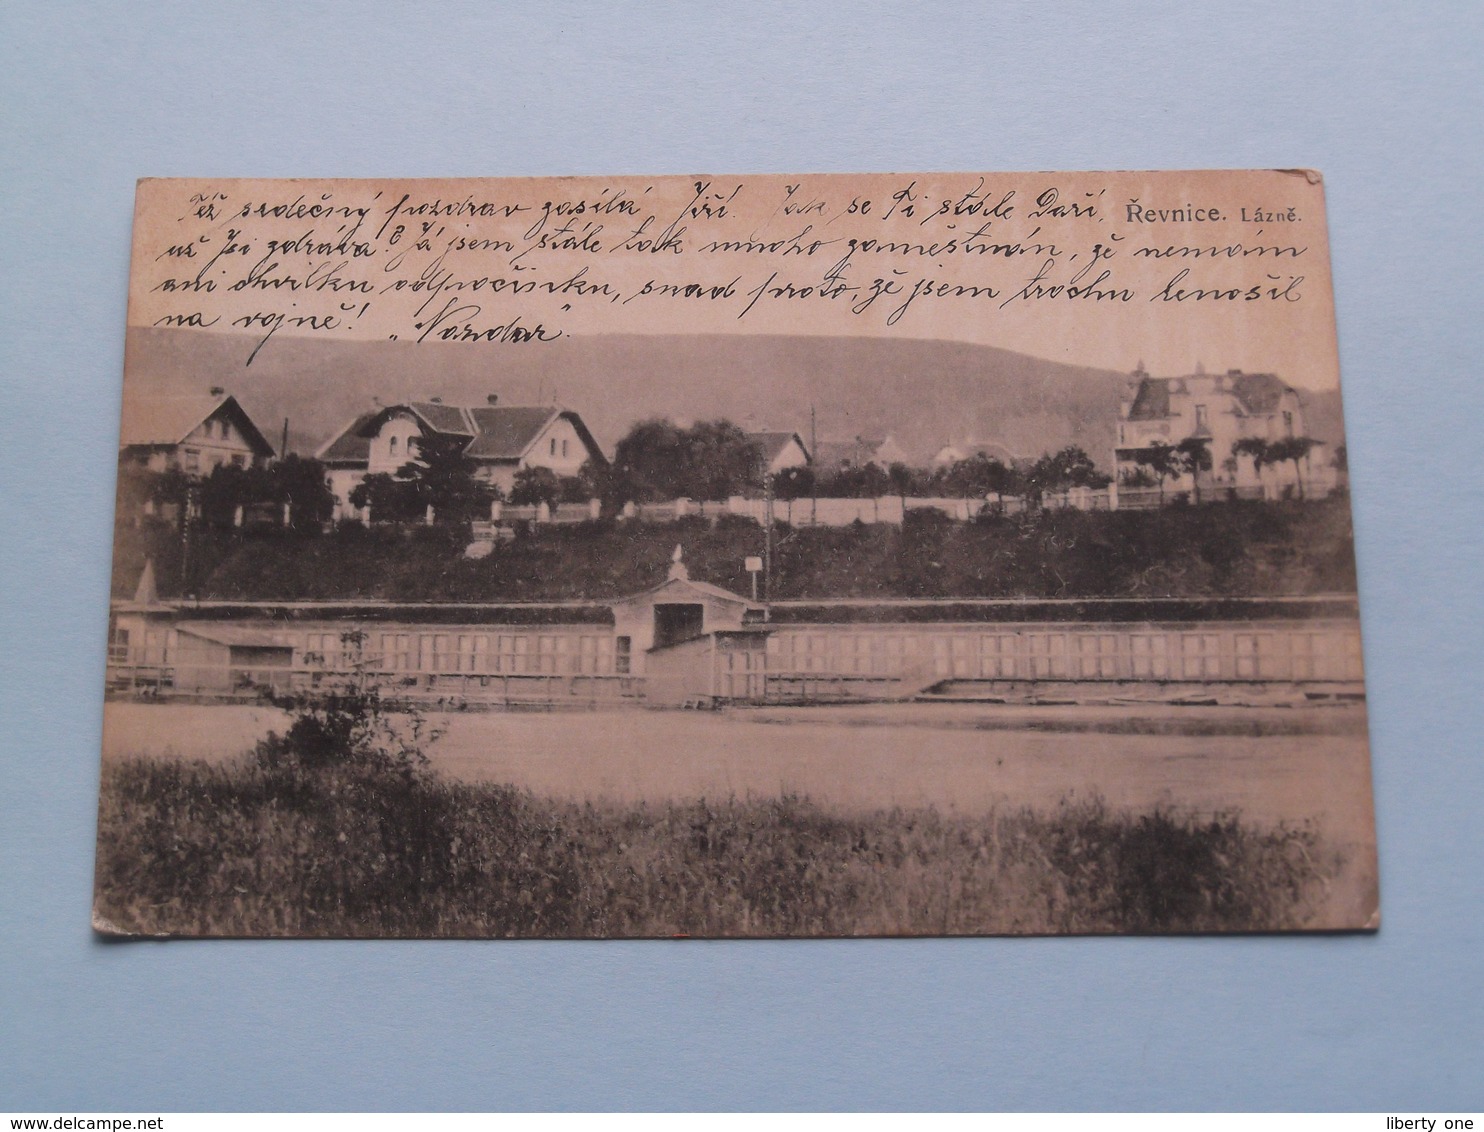 Též srdečný pozdrav zasílá Jiří. Jak se Ti stále Daří,
Řevnice. Lázně.
už Jsi zdráva? Já jsem stále tak mnoho zaměstnán, že nemám
ani chvilku odpočinku, snad proto, že jsem trochu lenošil
na vojně! „Nazdar“.
www.delcampe.net
liberty one